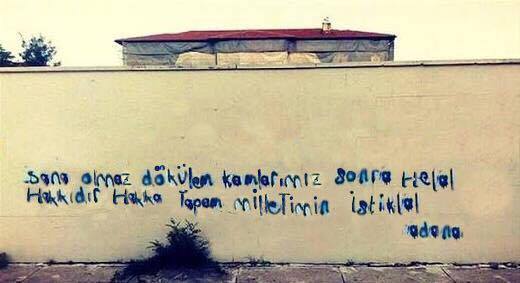 Sana olmaz dökülen kanlarımız sonra Helal
Hakkıdır Hakka Tapan milletimin istiklal
adana